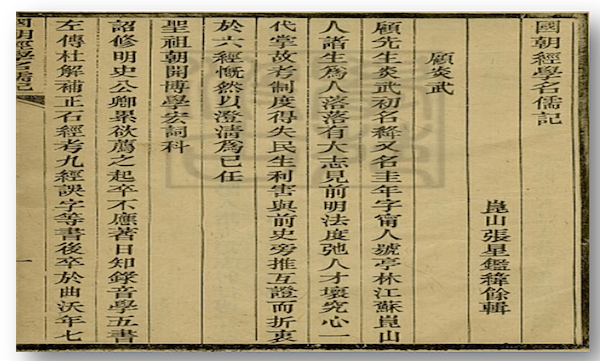 國朝經學名儒記
崑山張星鑑緯餘輯
顧炎武
顧先生炎武初名絳又名圭年字甯人號亭林江蘇崑山
人諸生爲人落落有大志見前明法度弛人才壞究心一
代掌故考制度得失民生利害與前史旁推互證而折衷
於六經慨然以澄清爲己任
聖祖朝開博學宏詞科
詔修明史公卿累欲薦之起卒不應著日知錄音學五書
左傳杜解補正石經考九經誤字等書後卒於曲沃年七
國朝經學名儒記 一